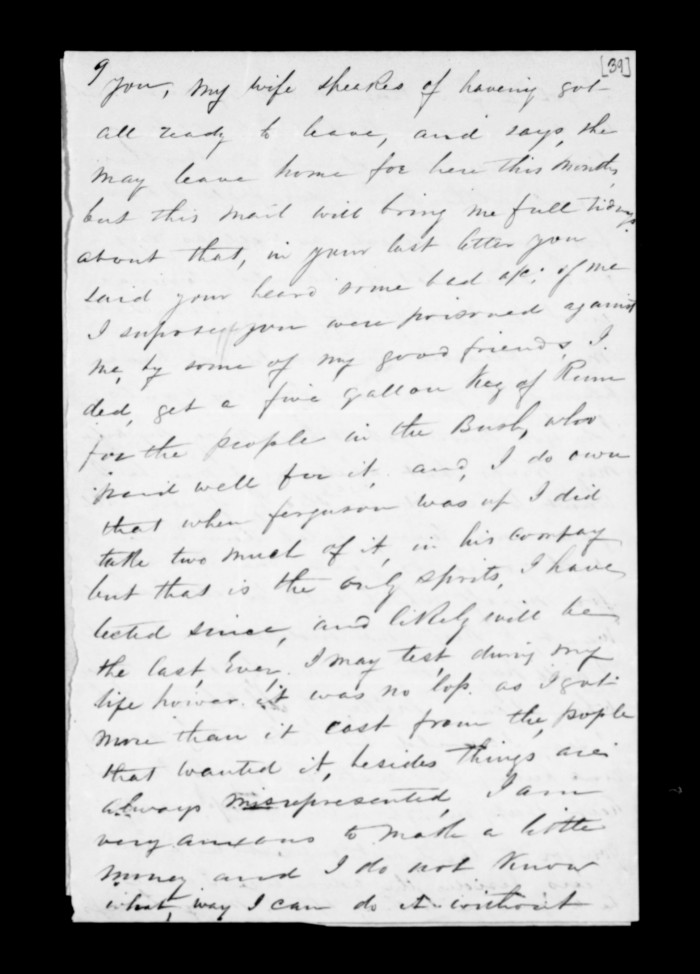 9 [39]
you, my wife speakes of haveing got
all ready to leave, and says, she
may leave home for here this month,
but this mail will bring me full tidings
about that, in your last letter you
said your heard some bad a/c: of me
I suposed you were poisoned against
me, by some of my good friends, I
ded, get a five gallon Keg of Rum
for the people in the Bush, who
paid well for it, and, I do own
that when ferguson was up I did
take two much of it, in his compay
but that is the only spirits, I have
tected since, and likely will be
the last, Ever, I may test, during my
life howar. it was no loss. as I got
more than it cost from the, people
that wanted it, besides things are
always misrepresented, I am
very anxious to make a little
money and I do not know
what, way I can do it without